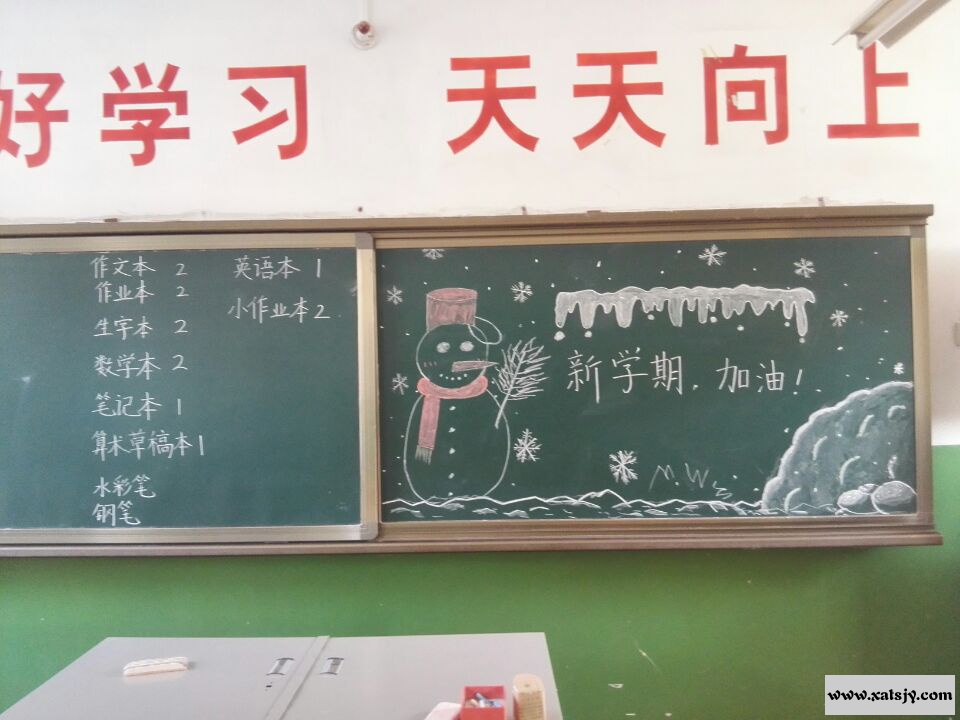 好学习 天天向上
作文本 2
作业本 2
生字本 2
数学本 2
笔记本 1
算术草稿本1
水彩笔
钢笔
英语本 1
小作业本2
新学期，加油！
M.W
www.xatsjy.com